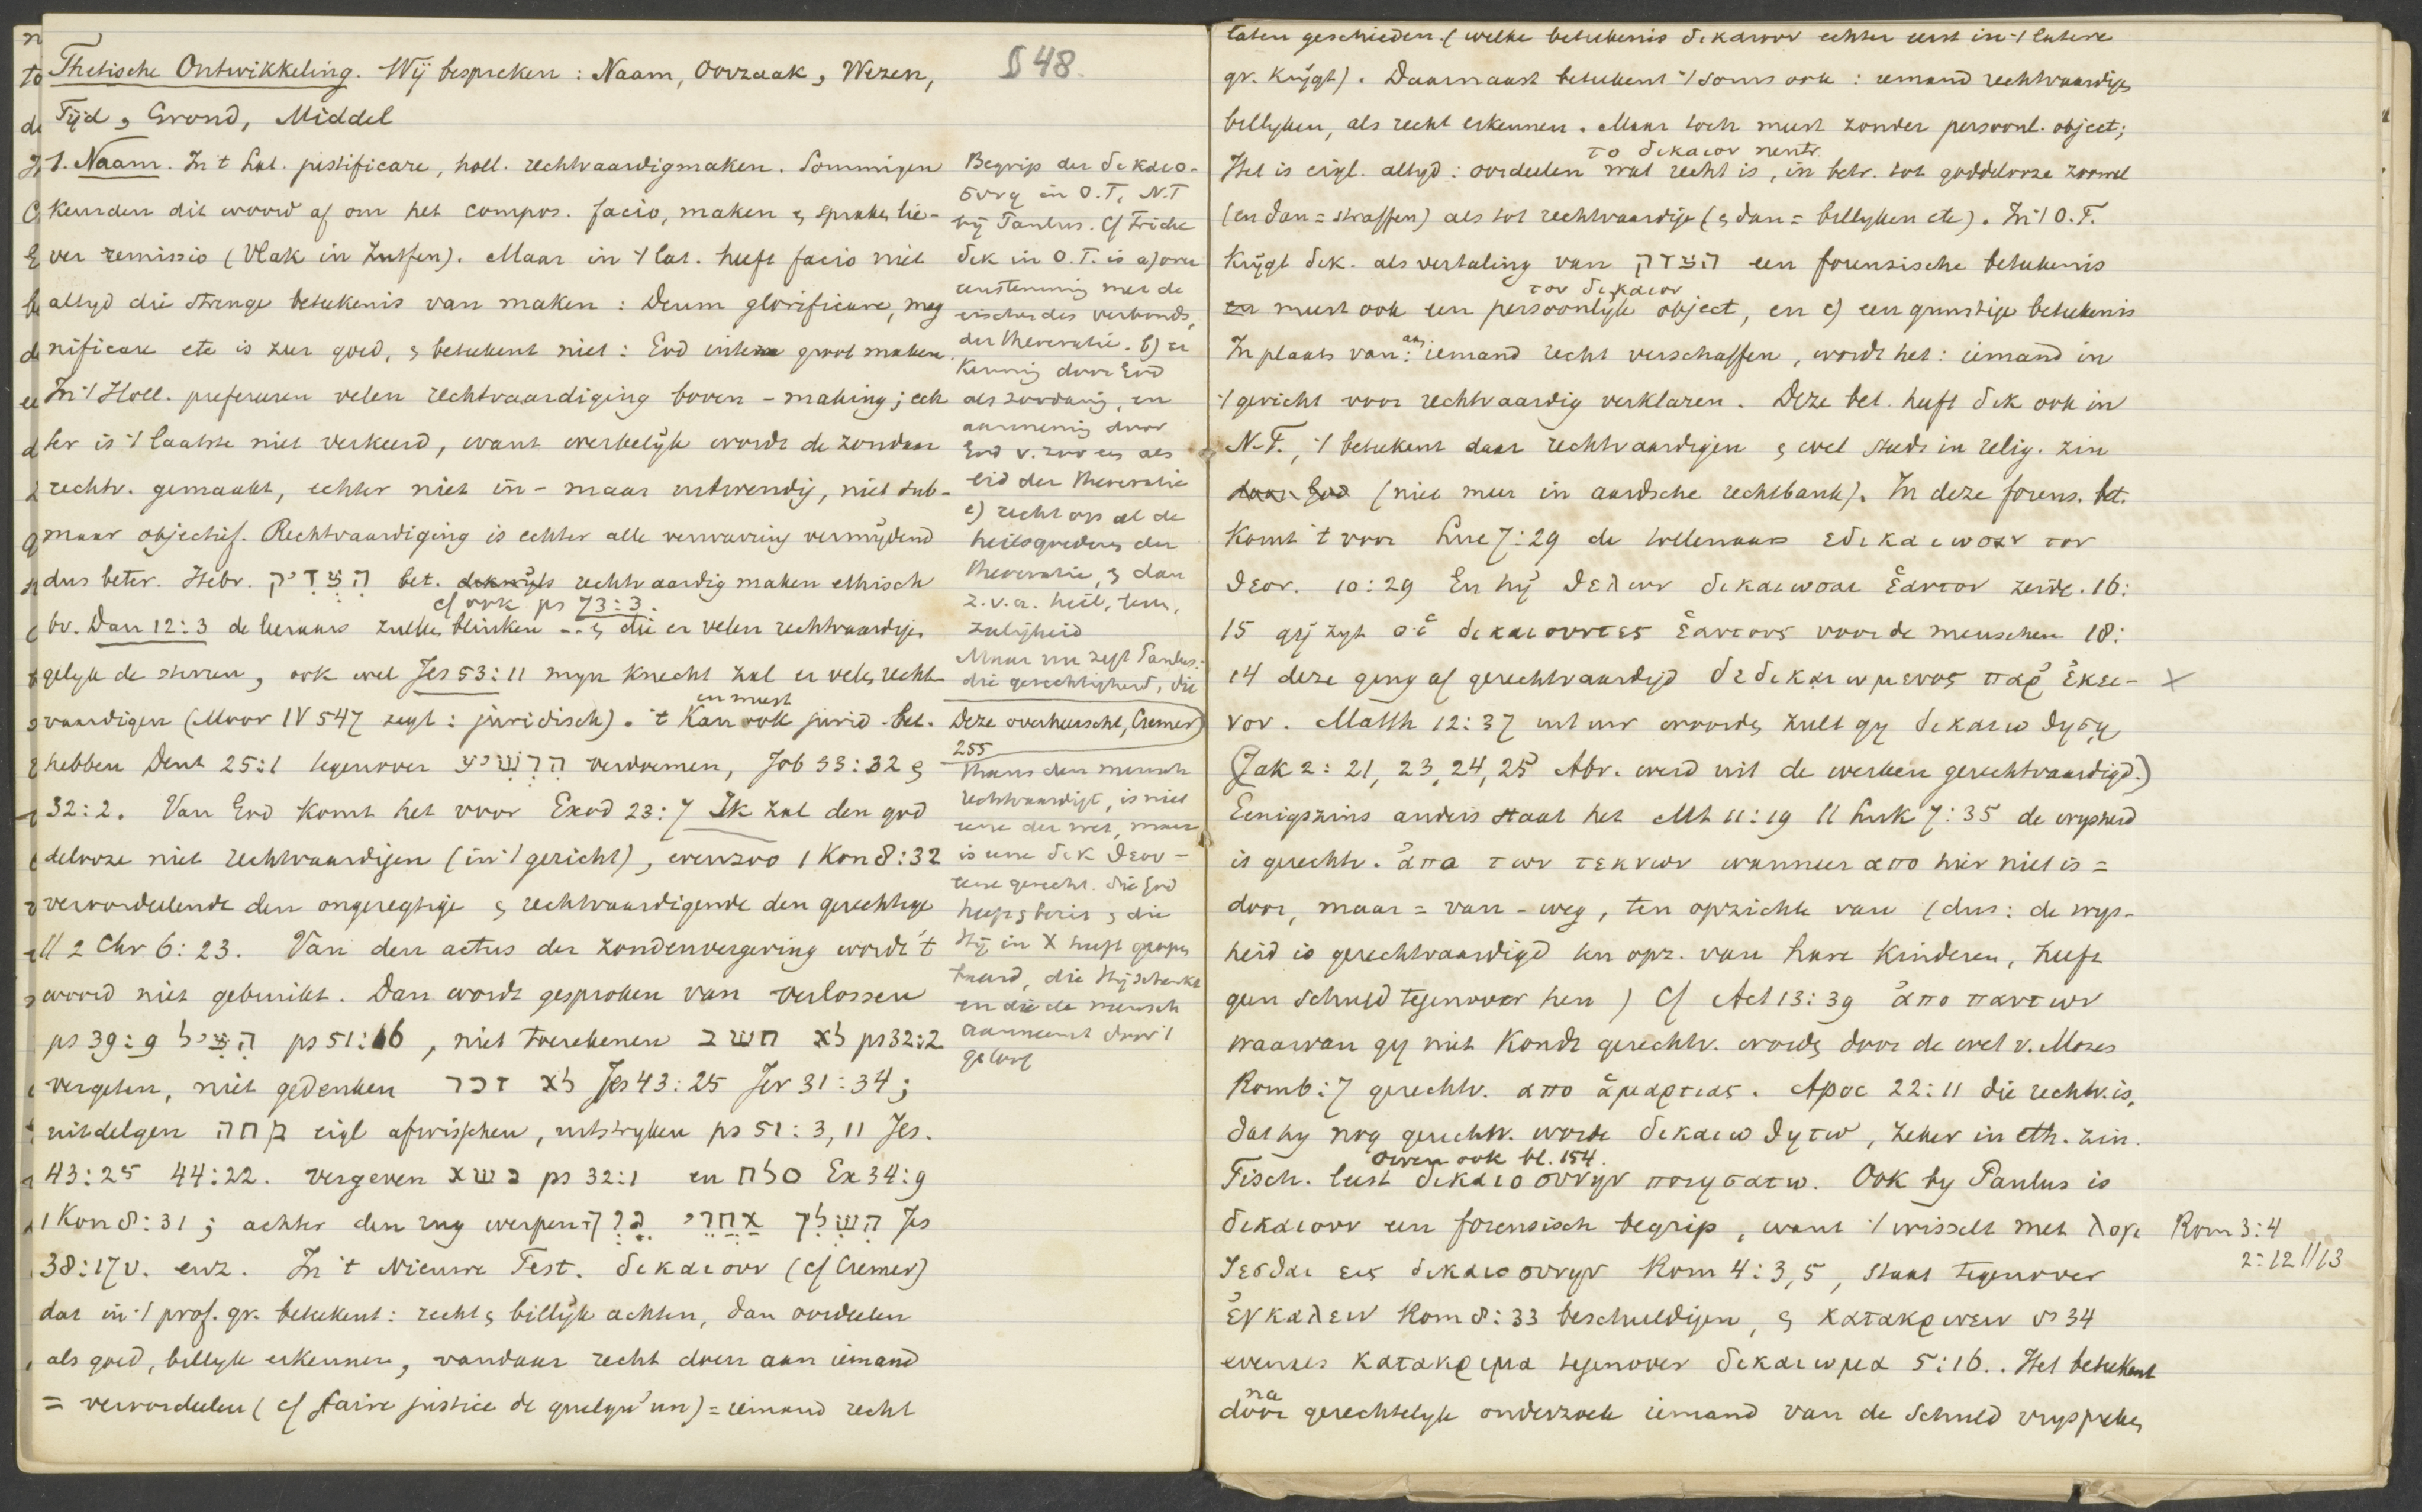 Thetische Ontwikkeling. Wij bespreken: Naam, Oorzaak, Wezen,
Tijd, Grond, Middel
§ 48.
1. Naam. In 't Lat. justificare, holl. rechtvaardigmaken. Sommigen
keurden dit woord af om het compos. facio, maken & spraken lie-
ver remissio (Vlak in Zutfen). Maar in 't Lat. heeft facio niet
altyd die strenge betekenis van maken: Deum glorificare, mag
nificare etc is zeer goed, & betekent niet: God groot maken.
In 't Holl. prefereren velen rechtvaardiging boven -making; ech
ter is 't laatste niet verkeerd, want werkelyk wordt de zondaar
rechtv. gemaakt, echter niet in- maar uitwendig, niet sub-
maar objectief. Rechtvaardiging is echter alle verwarring vermydend
dus beter. Hebr. הצדיק bet. rechtvaardig maken ethisch
cf ook ps 73:3.
bv. Dan 12:3 de leeraars zullen blinken .. & die er velen rechtvaardigen
gelyk de sterren, ook wel Jes 53:11 myn knecht zal er velen recht
vaardigen (Moor IV 547 zegt: juridisch). 't Kan ook jurid. bet.
en meest
hebben Deut 25:1 tegenover הרשיע verdoemen, Job 33:32 &
32:2. Van God komt het voor Exod 23:7 Ik zal den god
delooze niet rechtvaardigen (in 't gericht), evenzoo 1 Kon 8:32
veroordeelende den ongeregtige & rechtvaardigende den gerechtige
// 2 Chr 6:23. Van den actus der zondenvergeving wordt 't
woord niet gebruikt. Dan wordt gesproken van verlossen
ps 39:9 הציל ps 51:16, niet toerekenen לא חשב ps 32:2
vergeten, niet gedenken לא זכר Jes 43:25 Jer 31:34;
uitdelgen מחה eigl afwisschen, uitstryken ps 51:3,11 Jes.
43:25 44:22. vergeven נשא ps 32:1 en סלח Ex 34:9
1 Kon 8:31; achter den rug werpen השליך אחרי Jes
38:17v. enz. In 't Nieuwe Test. δικαιουν (cf Cremer)
dat in 't prof. gr. betekent: recht & billijk achten, dan oordeelen
als goed, billyk erkennen, vandaar recht doen aan iemand
= veroordeelen (cf faire justice de quelqu'un) = iemand recht
Begrip der δικαιο-
συνη in O.T, N.T
by Paulus. Cf Fricke
δικ in O.T. is a) over
eenstemming met de
eischen des verbonds,
der theocratie. b) er
kenning door God
als zoodanig, en
aanneming door
God v. zoo een als
lid der theocratie
c) recht op al de
heilsgoederen der
theocratie, & dan
z.v.a. heil,
zaligheid
Maar nu zegt Paulus:
die gerechtigheid, die
Deze overheerscht, Cremer)
255
thans den mensch
rechtvaardigt, is niet
eene der wet, maar
is eene δικ θεου -
eene gerecht. die God
heeft & en die
Hij in X heeft geopen
baard, die Hij schenkt
en die de mensch
aanneemt door 't
geloof
laten geschieden. (welke betekenis δικαιουν echter eerst in 't latere
gr. krygt). Daarnaast betekent 't soms ook: iemand rechtvaardigen
billyken, als recht erkennen. Maar toch meest zonder persoonl. object;
το δικαιον neutr.
Het is eigl. altyd: oordeelen wat recht is, in betr. tot goddelooze zoowel
(en dan = straffen) als tot rechtvaardige (& dan = billyken etc). In 't O.T.
krygt δικ. als vertaling van הצדק een forensische betekenis
τον δικαιον
meest ook een persoonlyk object, en c) een gunstige betekenis
In plaats van: aan iemand recht verschaffen, wordt het: iemand in
't gericht voor rechtvaardig verklaren. Deze bet. heeft δικ ook in
N.T., 't betekent daar rechtvaardigen & wel steeds in relig. zin
(niet meer in aardsche rechtbank). In deze forens. bet.
komt 't voor Luc 7:29 de tollenaars εδικαιωσαν τον
θεον. 10:29 En hij θελων δικαιωσαι ἑαυτον zeide. 16:
15 gij zyt οἱ δικαιουντες ἑαυτους voor de menschen 18:
14 deze ging af gerechtvaardigd δεδικαιωμενος παρ ἐκει-
νον. Matth 12:37 uit uw woorden zult gy δικαιωθηση
(Jak 2:21, 23, 24, 25 Abr. werd uit de werken gerechtvaardigd.)
Eenigszins anders staat het Mt 11:19 // Luk 7:35 de wysheid
is gerechtv. ἀπο των τεκνων wanneer απο hier niet is =
door, maar = van - weg, ten opzichte van (dus: de wys-
heid is gerechtvaardigd ten opz. van hare kinderen, heeft
geen schuld tegenover hen) Cf Act 13:39 ἀπο παντων
waarvan gy niet kondt gerechtv. worden door de wet v. Mozes
Rom 6:7 gerechtv. απο ἁμαρτιας. Apoc 22:11 die rechtv. is,
dat hy nog gerechtv. worde δικαιωθητω, zeker in eth. zin.
Owen ook bl. 154.
Tisch. leest δικαιοσυνην ποιησατω. Ook by Paulus is
δικαιουν een forensisch begrip, want 't wisselt met λογι
ζεσθαι εις δικαιοσυνην Rom 4:3,5, staat tegenover
ἐγκαλειν Rom 8:33 beschuldigen, & κατακρινειν vs 34
evenzes κατακριμα tegenover δικαιωμα 5:16.. Het betekent
na
door gerechtelyk onderzoek iemand van de schuld vryspreken
X
Rom 3:4
2:12 // 13